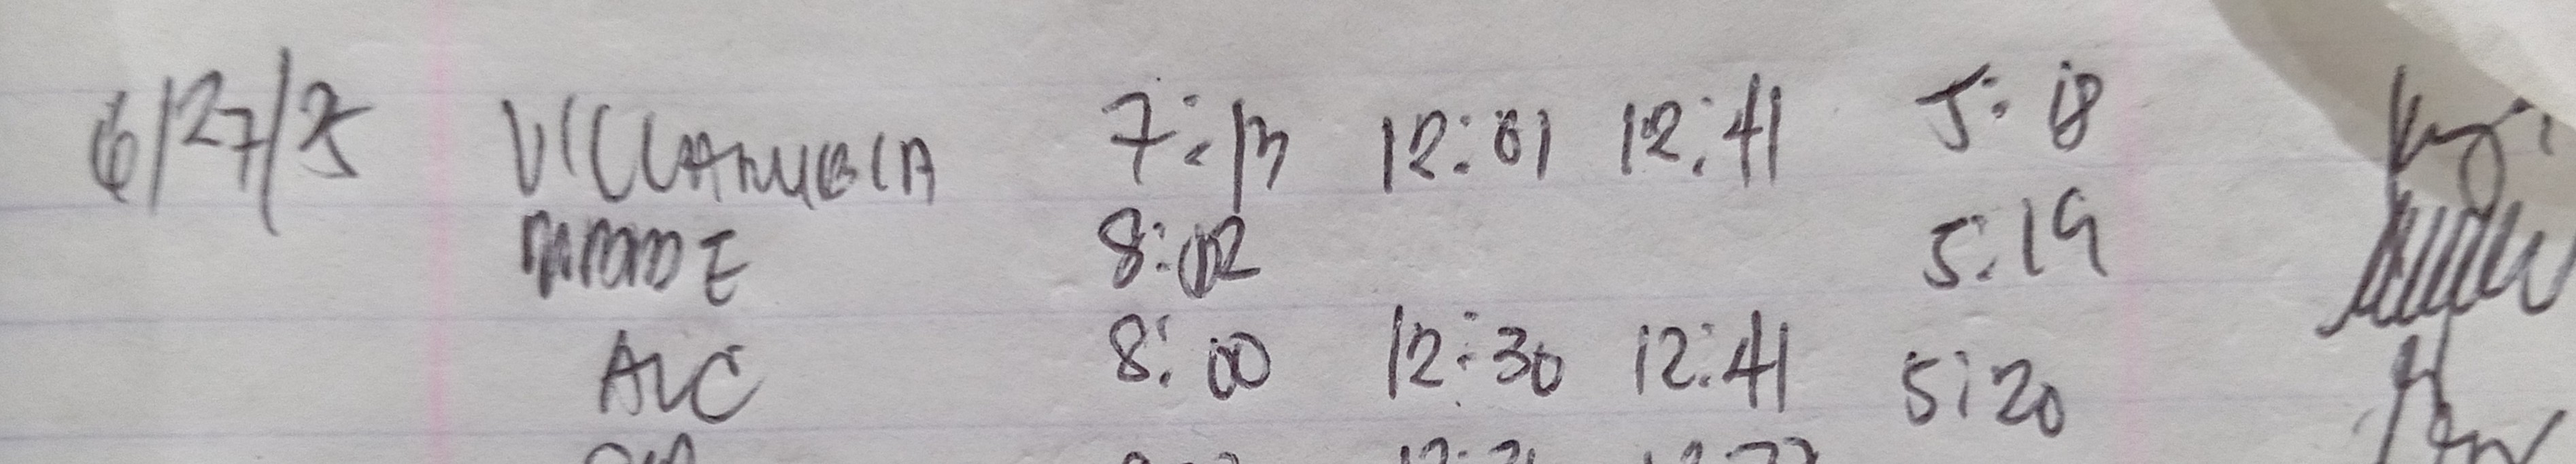 6/27/25 VILLANUEVA 7:13 12:01 12:41 5:18
8:02 5:19
ALC 8:00 12:30 12:41 5:20